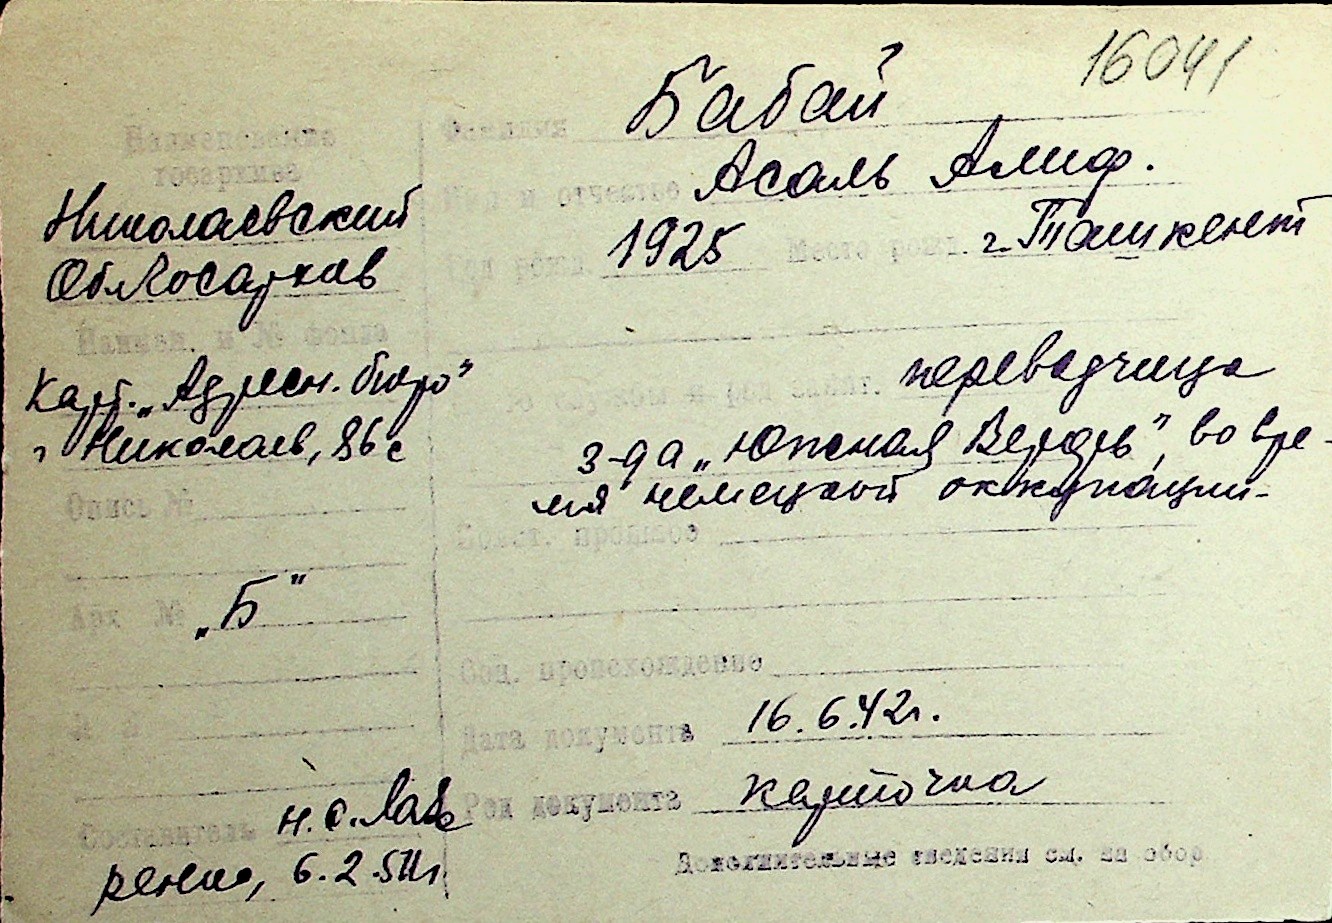 16041
Наименование
госархива
Николаевский
Облгосархив
Наимен. и № фонда
Карт. „Адресн. бюро"
г. Николаев, 86с
Опись №
Арх № „Б"
Составитель н.с. Лав
ренко, 6.2.51г.
Фамилия Бабай
Имя и отчество Асаль Алиф.
Год рожд. 1925 Место рожд. г. Ташкент
службы и род занят. переводчица
з-да „Южная Верфь", во вре-
мя немецкой оккупации-
Полит. прошлое
Соц. происхождение
Дата документа 16.6.42г.
Род документа карточка
Дополнительные сведения см. на обор